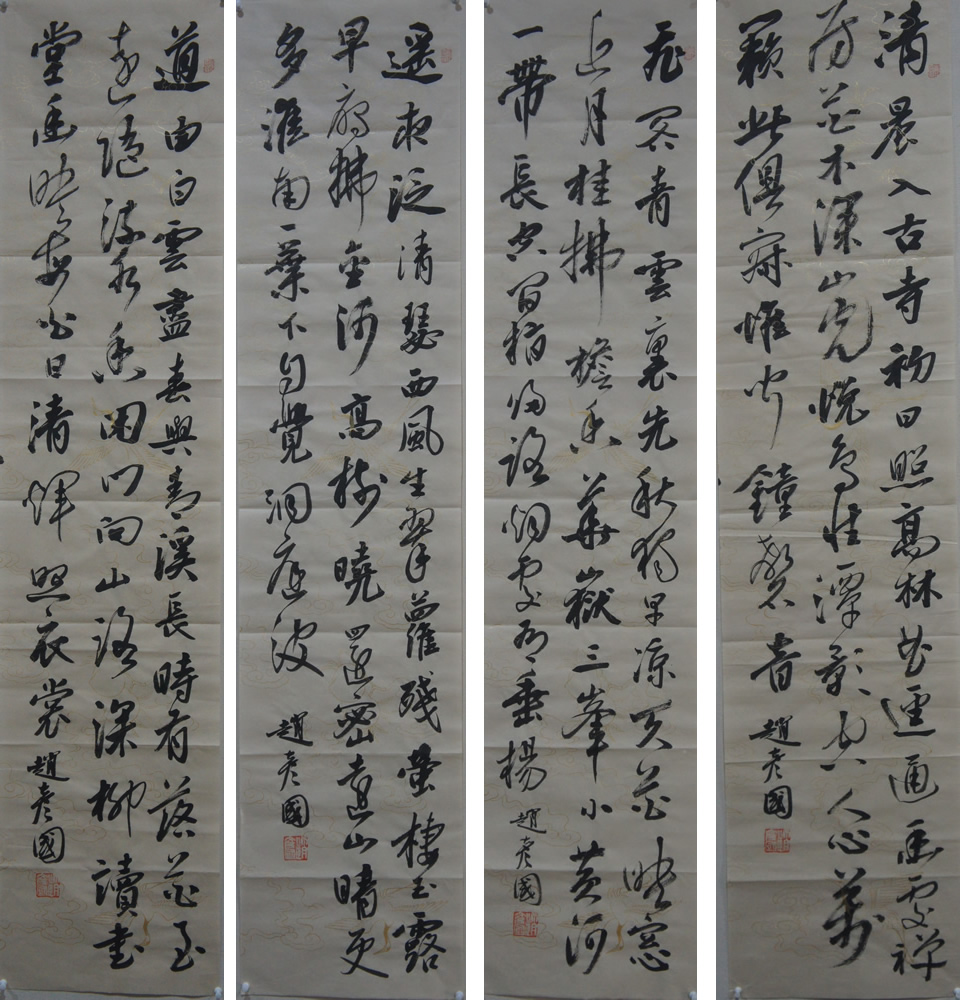 清晨入古寺初日照高林曲逕通幽處禪
房花木深山光悅鳥性潭影空人心萬
籟此俱寂惟聞鐘磬音 趙彥國
飛閣青雲裏先秋獨早涼天花映窗
近月桂拂檐香華嶽三峯小黃河
一帶長空間指歸路烟處有垂楊 趙彥國
遙夜泛清瑟西風生翠蘿殘螢棲玉露
早雁拂金河高樹曉還密遠山晴更
多淮南一葉下自覺洞庭波 趙彥國
道由白雲盡春與青溪長時有落花至
遠隨流水香閑門向山路深柳讀書
堂幽映每白日清輝照衣裳 趙彥國